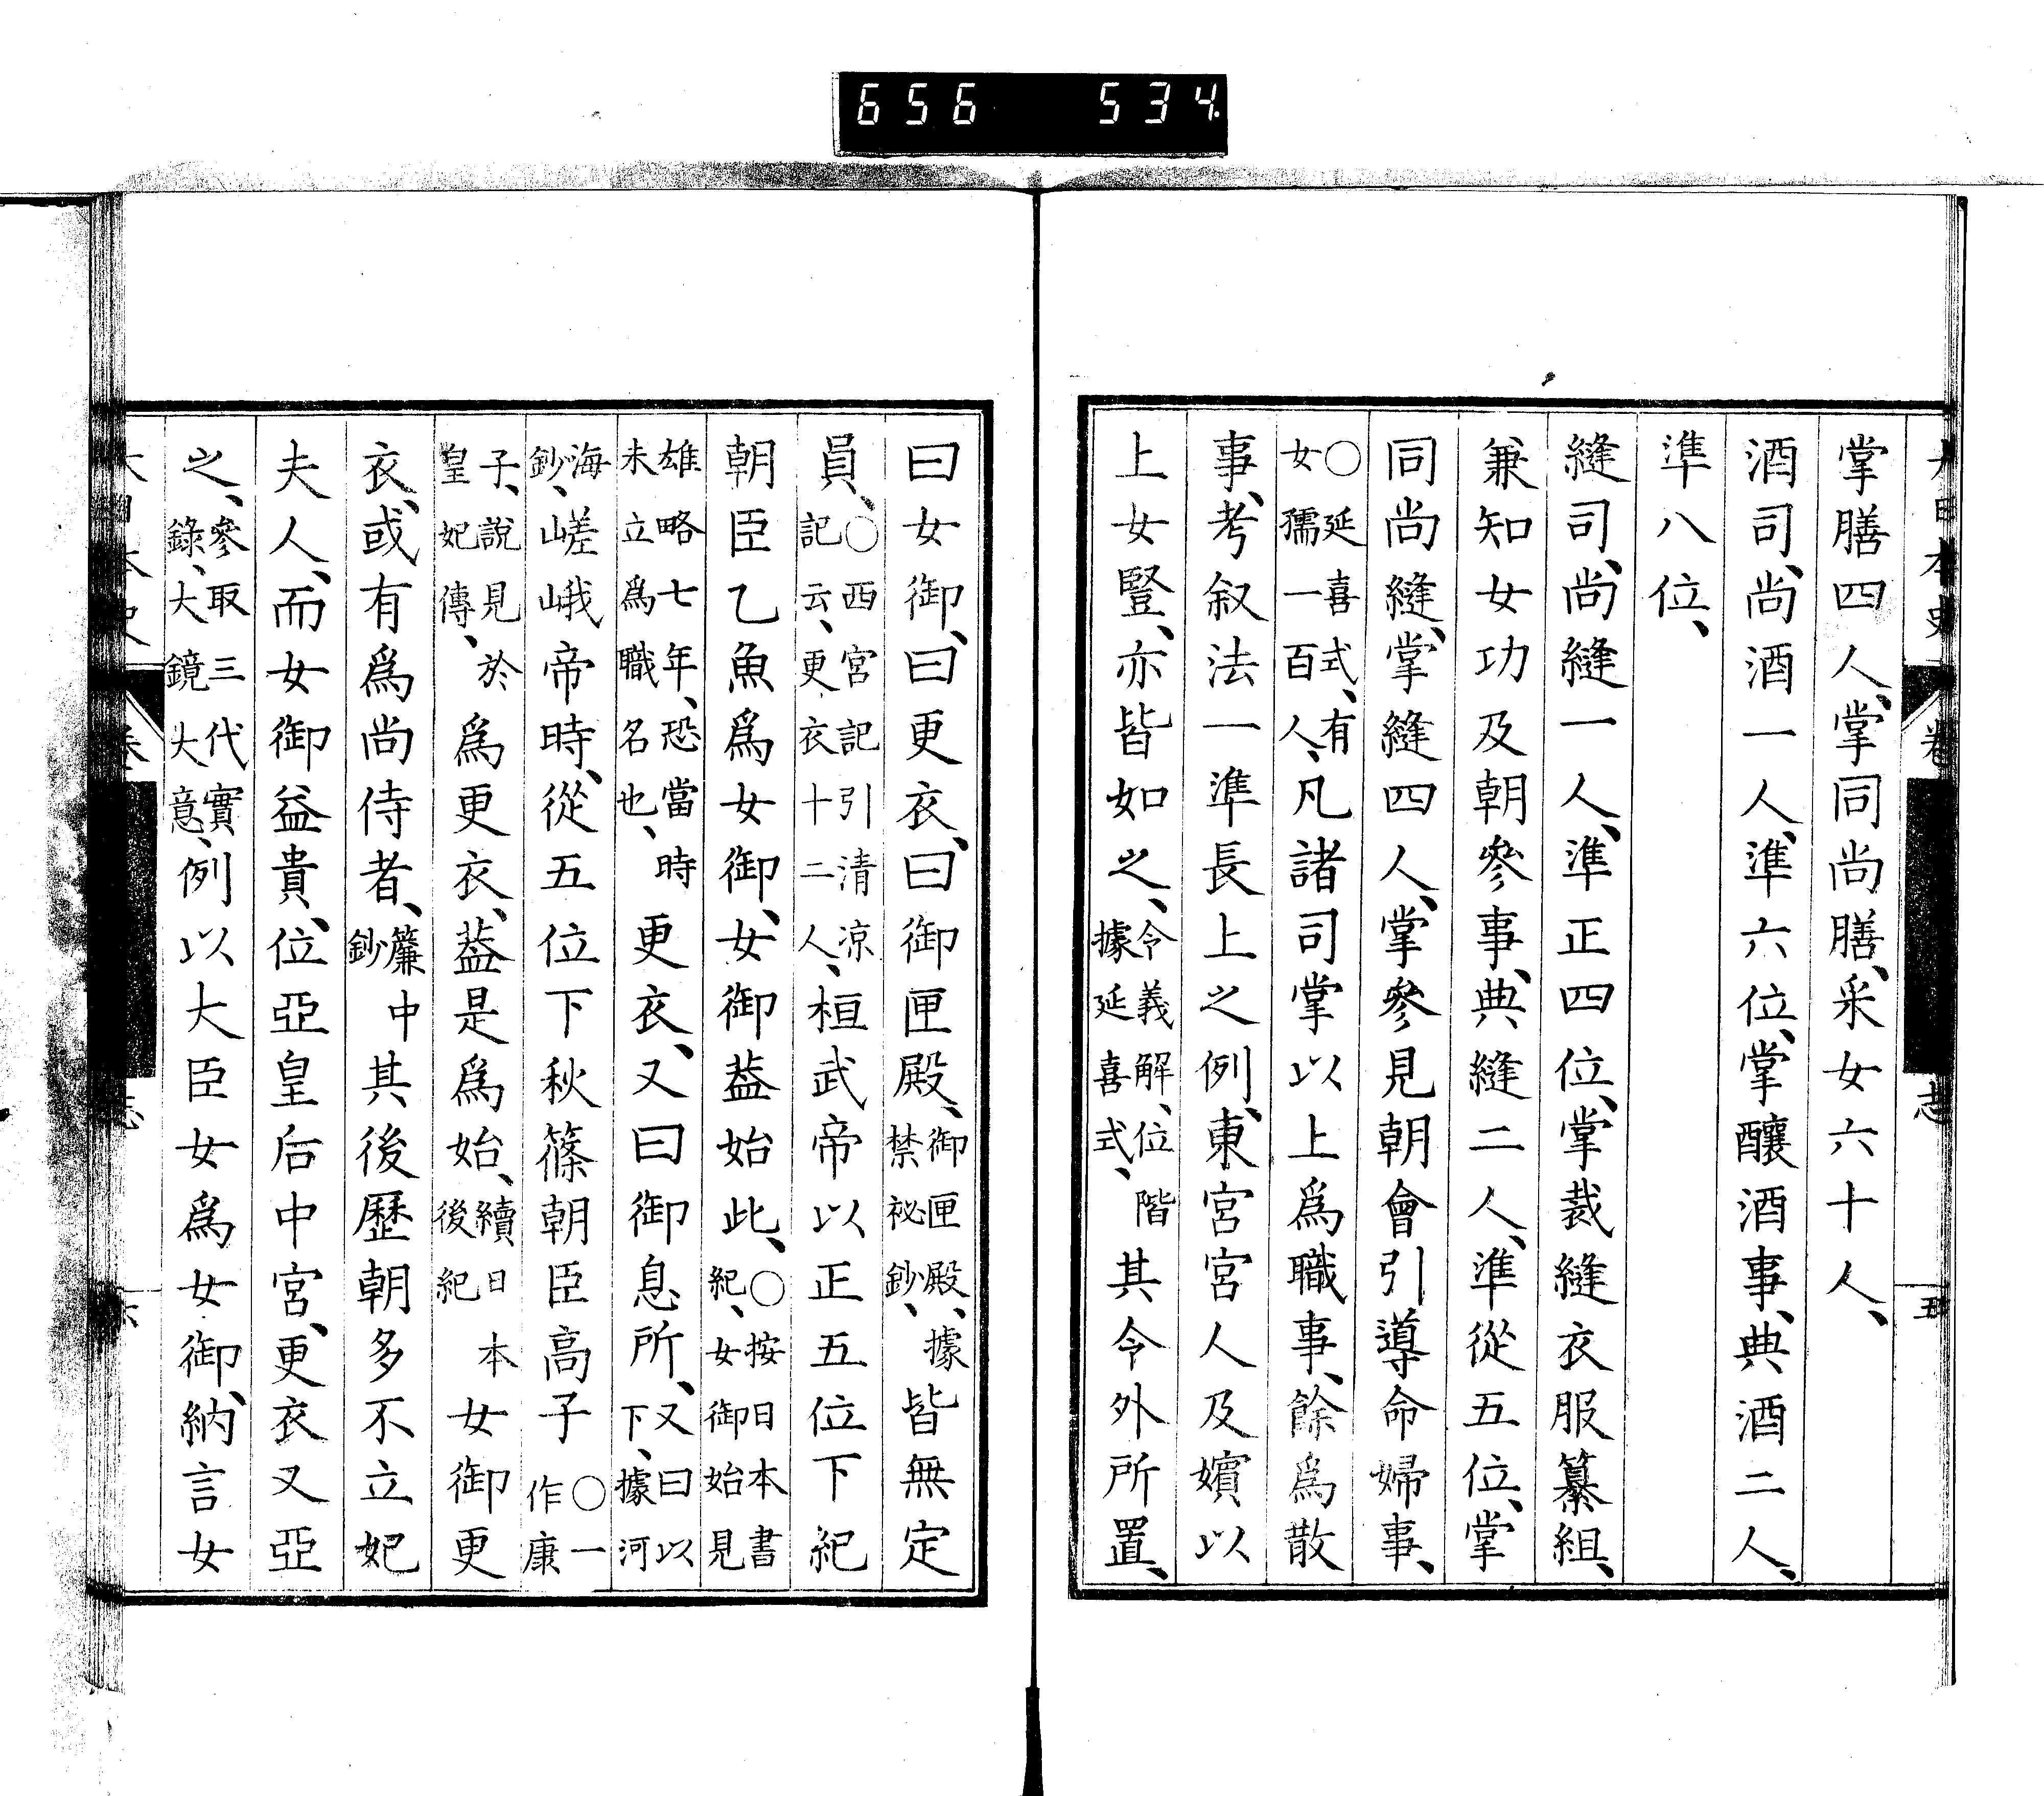 656 534
掌膳四人、掌同尚膳、采女六十人、
酒司、尚酒一人、準六位、掌釀酒事、典酒二人、
準八位、
縫司、尚縫一人、準正四位、掌裁縫衣服纂組、
兼知女功及朝參事、典縫二人、準從五位、掌
同尚縫、掌縫四人、掌參見朝會引導命婦事、
○延喜式、有女孺一百人、凡諸司掌以上爲職事、餘爲散
事、考叙法一準長上之例、東宮宮人及嬪以
上女豎、亦皆如之、令義解、位階據延喜式、其令外所置、
曰女御、曰更衣、曰御匣殿、御匣殿、據禁祕鈔、皆無定
員、○西宮記引清凉記云、更衣十二人、桓武帝以正五位下紀
朝臣乙魚爲女御、女御葢始此、○按日本書紀、女御始見
雄略七年、恐當時未立爲職名也、更衣、又曰御息所、又曰以下、據河
海鈔、嵯峨帝時、從五位下秋篠朝臣高子○一作康
子、說見於皇妃傳、爲更衣、葢是爲始、續日本後紀女御更
衣、或有爲尚侍者、簾中鈔其後歷朝多不立妃
夫人、而女御益貴、位亞皇后中宮、更衣又亞
之、參取三代實錄、大鏡大意、例以大臣女爲女御、納言女